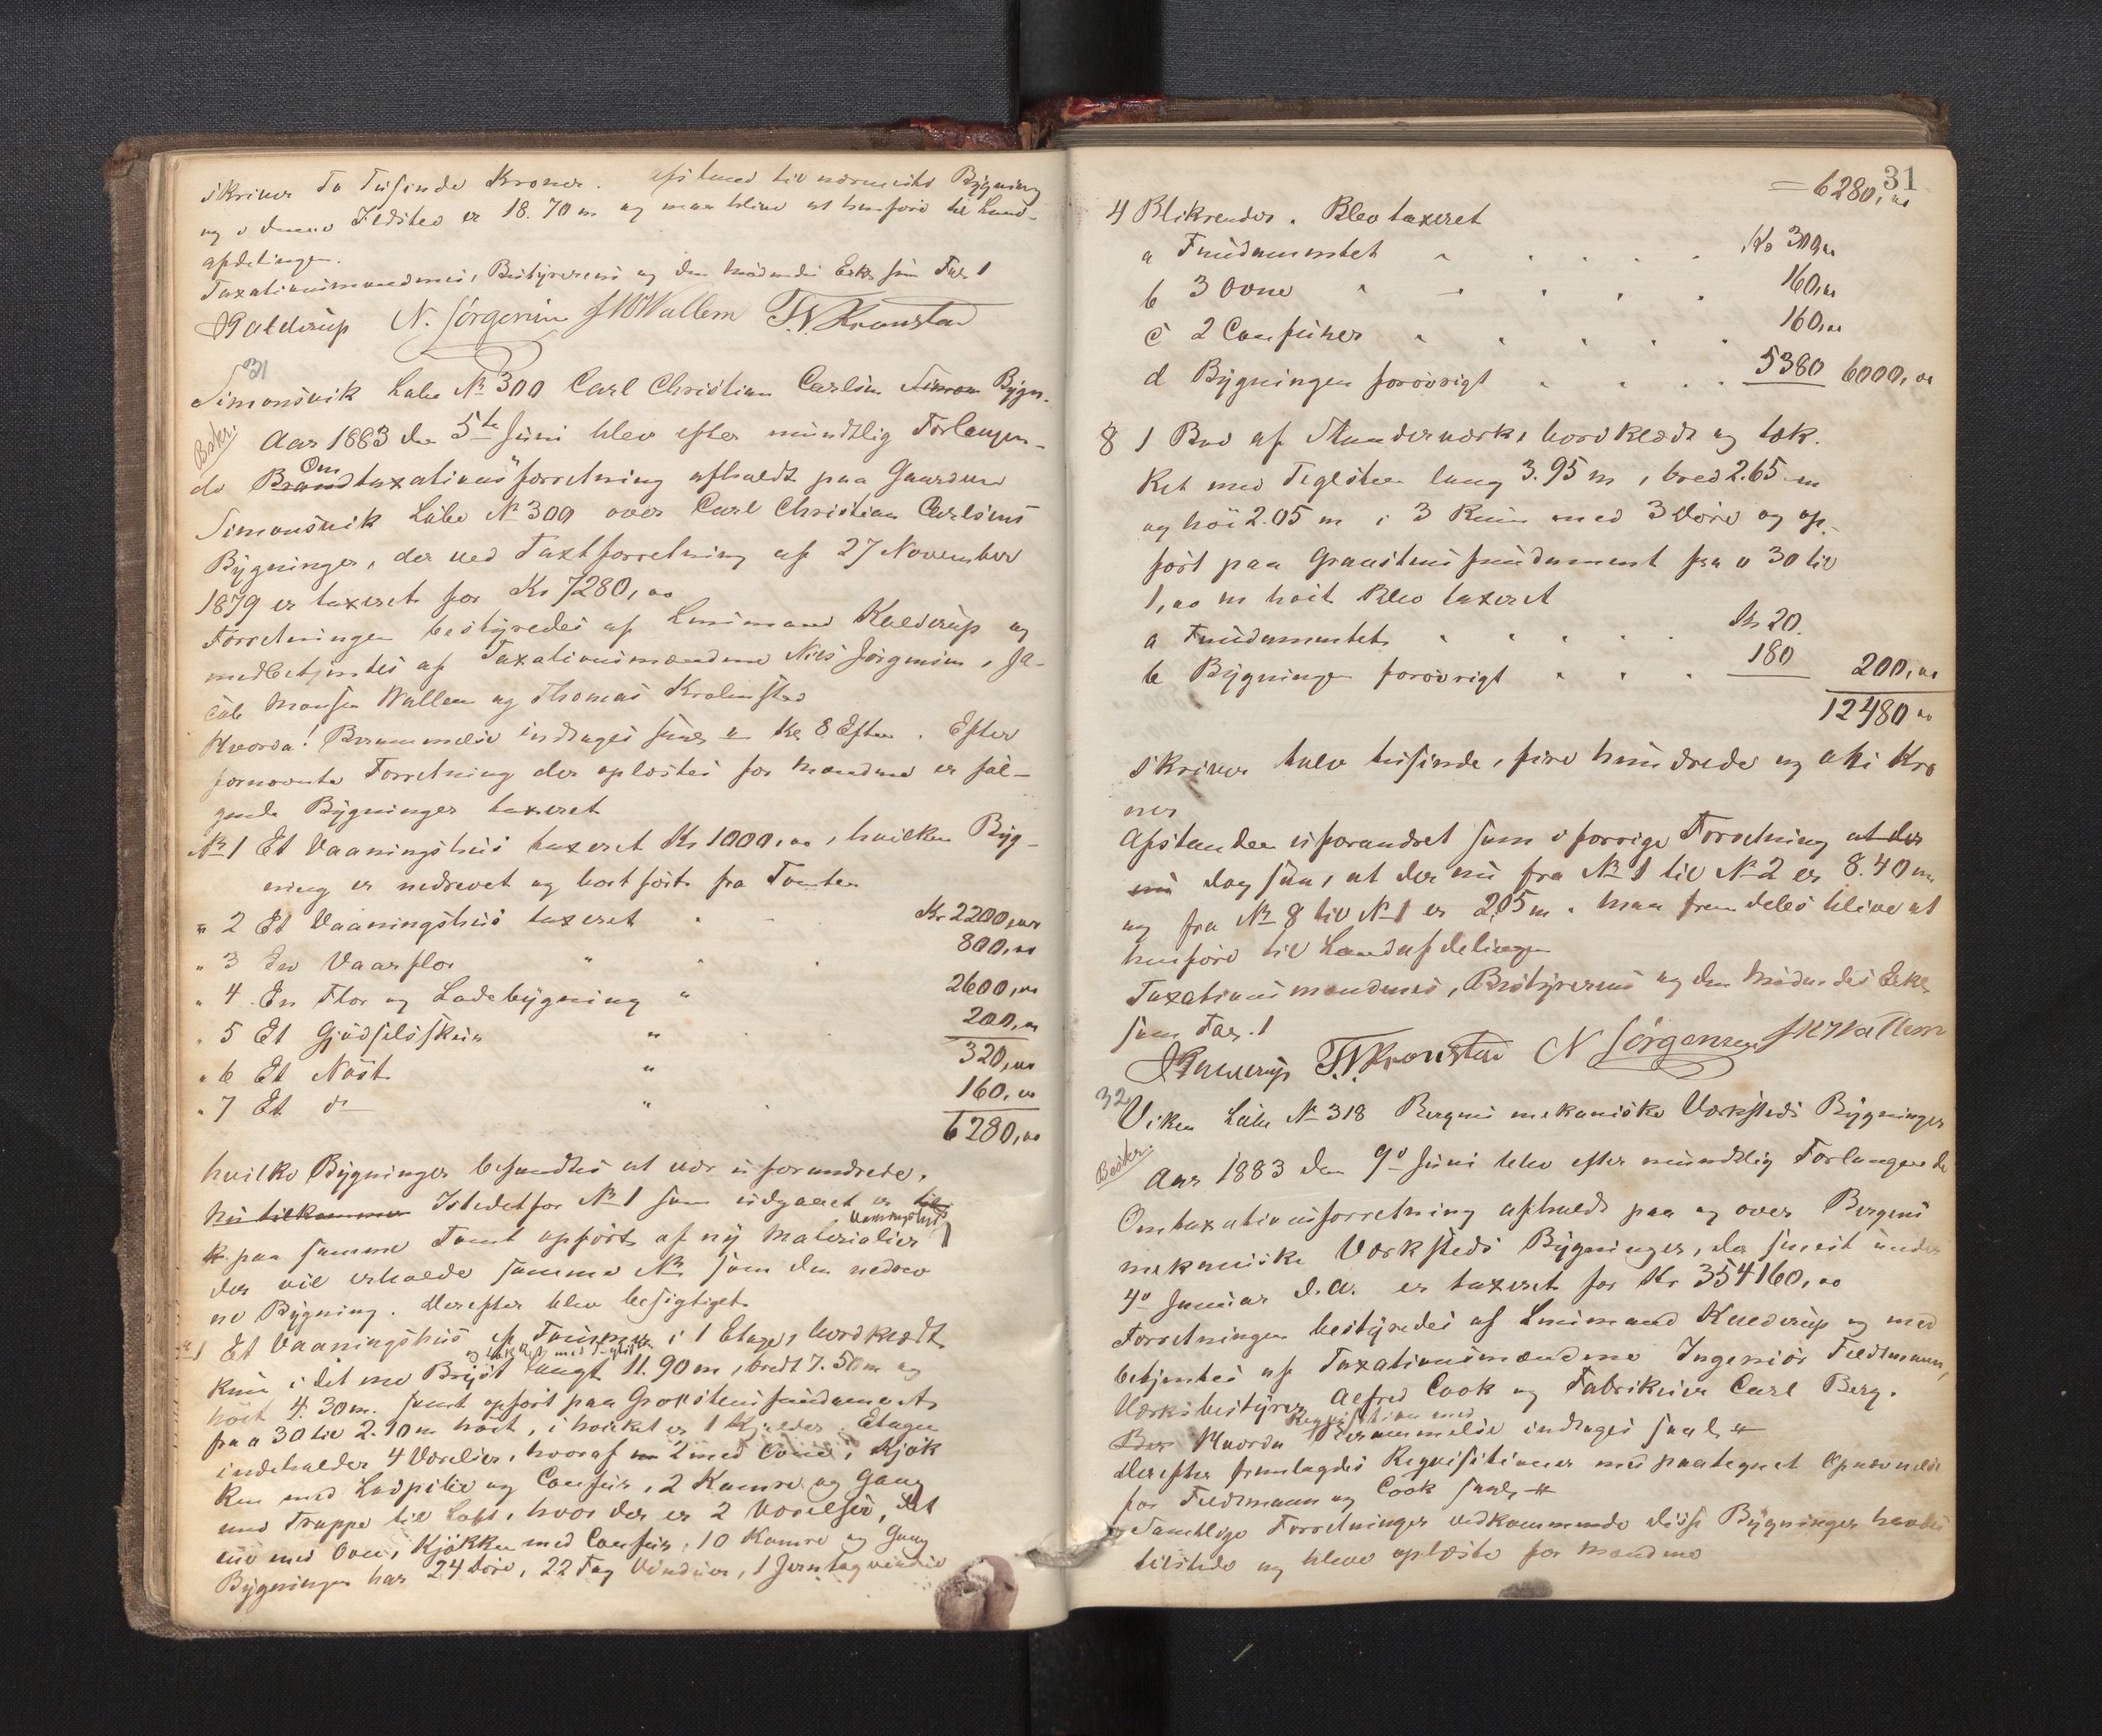 skriver To Tusinde Kroner. Afstand til nærmeste Bygning
og i denne Ildsted er 18.70 m og maa blive at henføre til Land-
afdelingen.
Taxationsmændenes, Bestyrerens og den mødendes Erkl som Fol 1
Kalderup N. Jørgensen J M Wallem T. N. Kronstad
31
Simonsvik Løbe No 300 Carl Christian Carlsen Simon Bygn.
Beskr.
Aar 1883 den 5te Juni blev efter mundtlig Forlangen-
de Brand Om taxationsforretning afholdt paa Gaarden
Simonsvik Løbe No 300 over Carl Christian Carlsens
Bygninger, der ved Taxtforretning af 27 November
1879 er taxeret for Kr 7280,00
Forretningen bestyredes af Lensmand Kalderup og
medbetjentes af Taxationsmændene Nils Jørgensen, Ja-
cob Monsen Wallem og Thomas Kronstad
Hvorda! Berammelse indtages saal. Kl 8 Efterm. Efter
fornævnte Forretning der oplæstes for Mændene er føl-
gende Bygninger taxeret
No 1 Et Vaaningshus taxeret Kr 1000,00, hvilken Byg-
ning er nedrevet og bortført fra Tomten
" 2 Et Vaaningshus taxeret Kr 2200,00
" 3 En Vaarflor " 800,00
" 4 En Flor og Ladebygning " 2600,00
" 5 Et Gjødselsskur " 200,00
" 6 Et Nøst " 320,00
" 7 Et do " 160,00
6280,00
hvilke Bygninger befandtes at vær uforandrede.
Nu tilkommer Istedetfor No 1 som udgaaet er
paa samme Tomt opført af ny Materialier Vaaningshus
der vil erholde samme No som den nedrev
ne Bygning. Derefter blev besigtiget
No 1 Et Vaaningshus af Tømmer i 1 Etage, bordklædt
og tækket med Teglsten
Kun i det ene Bryst langt 11.90 m, bredt 7.50 m og
høit 4.30 m. samt opført paa Graastensfundament
fra 0 30 til 2.10 m høit, i hvilket er 1 Kjælder. Etagen
indeholder 4 Værelser, hvoraf 2 med Ovne, Kjøk
ken med Ladpibe og Comfur, 2 Kamre og Gang
med Trappe til Loft, hvor der er 2 Værelser, det
ene med Ovn, Kjøkken med Comfur, 10 Kamre og Gang
Bygningen har 24 Døre, 22 Fag Vinduer, 1 Jerntagvindue
31
= 6280,00
4 Blikrender. Blev taxeret
a Fundamentet Kr 300,00
b 3 Ovne 160,00
c 2 Comfurer 160,00
d Bygningen forøvrigt 5380 6000,00
8 1 Bod af Standerværk, bordklædt og tæk-
ket med Teglsten lang 3.95 m, bred 2.65 m
og høi 2.05 m i 3 Rum med 3 Døre og op-
ført paa Graastensfundament fra 0 30 til
1,00 m høit Blev taxeret
a Fundamentet Kr 20.
b Bygningen forøvrigt 180 200,00
12480,00
skriver tolv tusinde, fire hundrede og otti Kro
ner
Afstanden uforandret som i forrige Forretning at der
nu dog saa, at der nu fra No 1 til No 2 er 8.40 m
og fra No 8 til No 1 er 2.05 m. Maa fremdeles blive at
henføre til Landafdelingen
Taxationsmændenes, Bestyrerens og den mødendes Erkl
som Fol. 1
Kalderup T. N. Kronstad N Jørgensen J M Wallem
32
Viken Løbe No 318 Bergens mekaniske Værksteds Bygninger
Beskr.
Aar 1883 den 9de Juni blev efter mundtlig Forlangende
Omtaxationsforretning afholdt paa og over Bergens
mekaniske Værksteds Bygninger, der senest under
4de Januar d.a. er taxeret for Kr 354160,00
Forretningen bestyredes af Lensmand Kalderup og med
betjentes af Taxationsmændene Ingeniør Feldtmann,
Værksbestyrer Alfred Cook og Fabrikeier Carl Berg.
Ber Hvorda Requisition med Berammelse indtages saal.
Derefter fremlagdes Requisitioner med paategnet Opnævnelse
for Feldtmann og Cook saal.
Samtlige Forretninger vedkommende disse Bygninger havdes
tilstede og bleve oplæste for Mændene